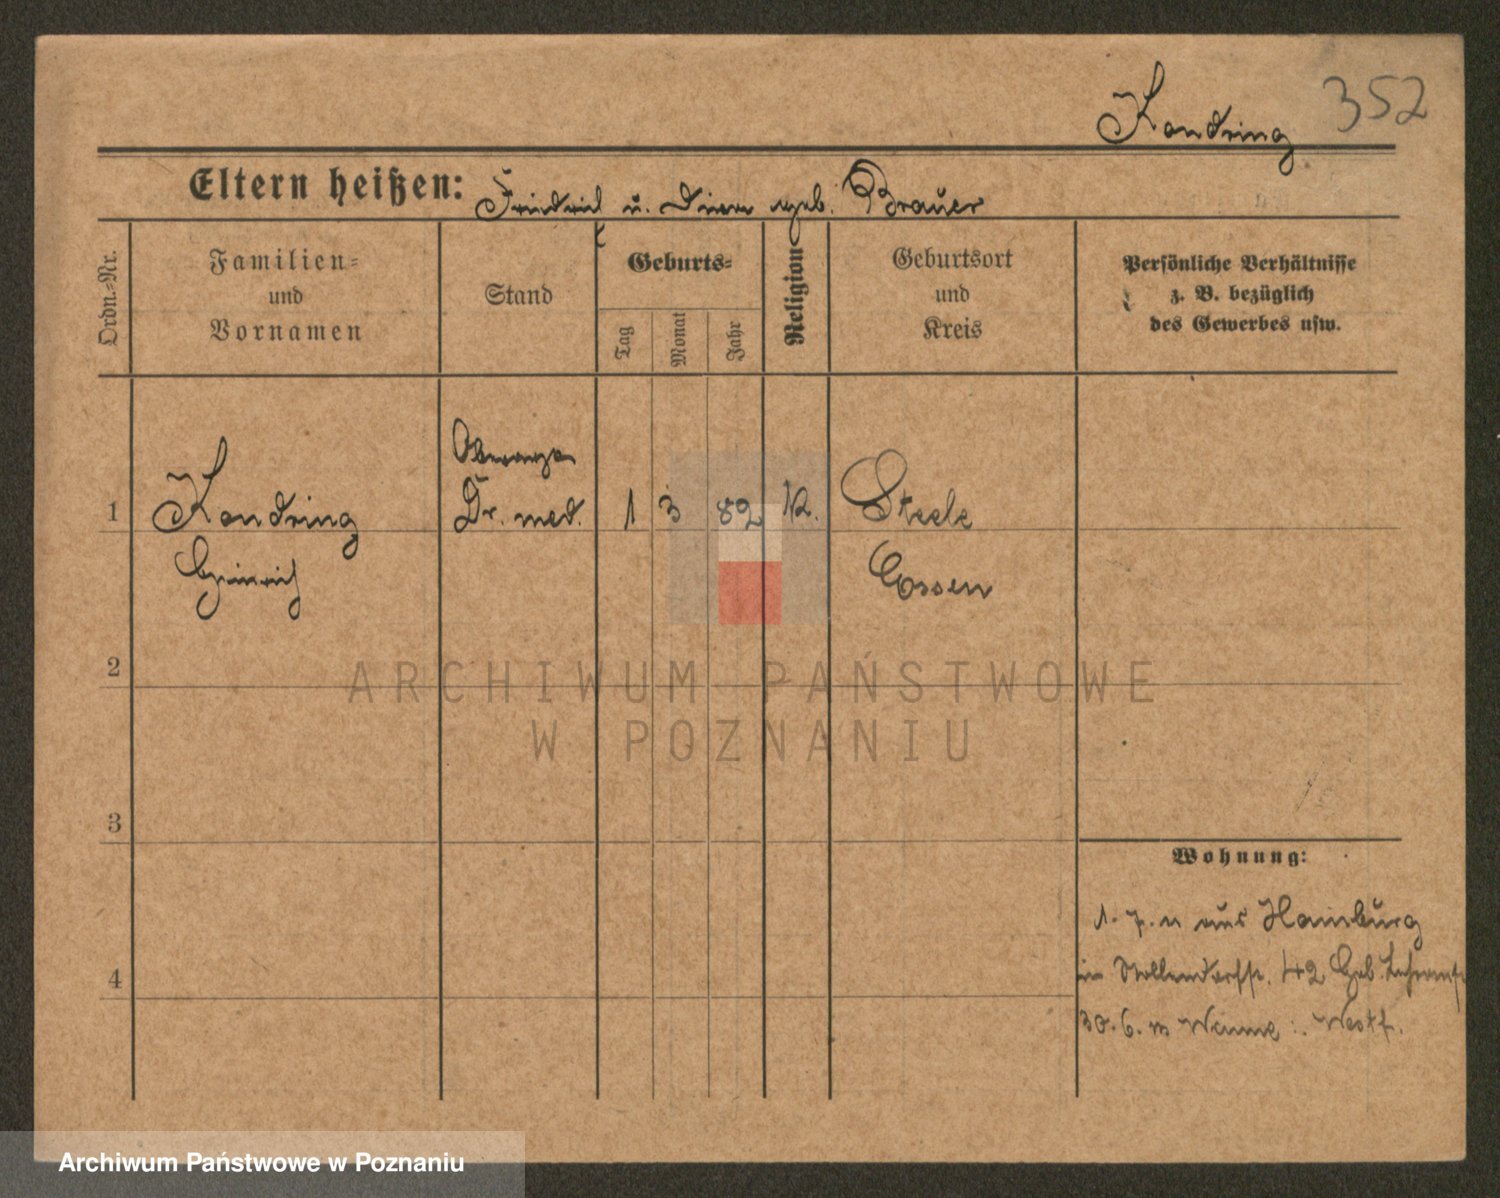 352
Kondring
Eltern heißen: Friedrich u. geb. Brauer
Ordn.-Nr.
Familien-
und
Vornamen
Stand
Geburts-
Tag
Monat
Jahr
Religion
Geburtsort
und
Kreis
Persönliche Verhältnisse
z. B. bezüglich
des Gewerbes usw.
1
Kondring
Heinrich
Dr. med.
1
3
82
K.
Steele
Essen
2
3
4
Wohnung:
1. 7. 11 aus Hamburg
in 42 Geb.
30. 6. Westf.
ARCHIWUM PAŃSTWOWE
W POZNANIU
Archiwum Państwowe w Poznaniu